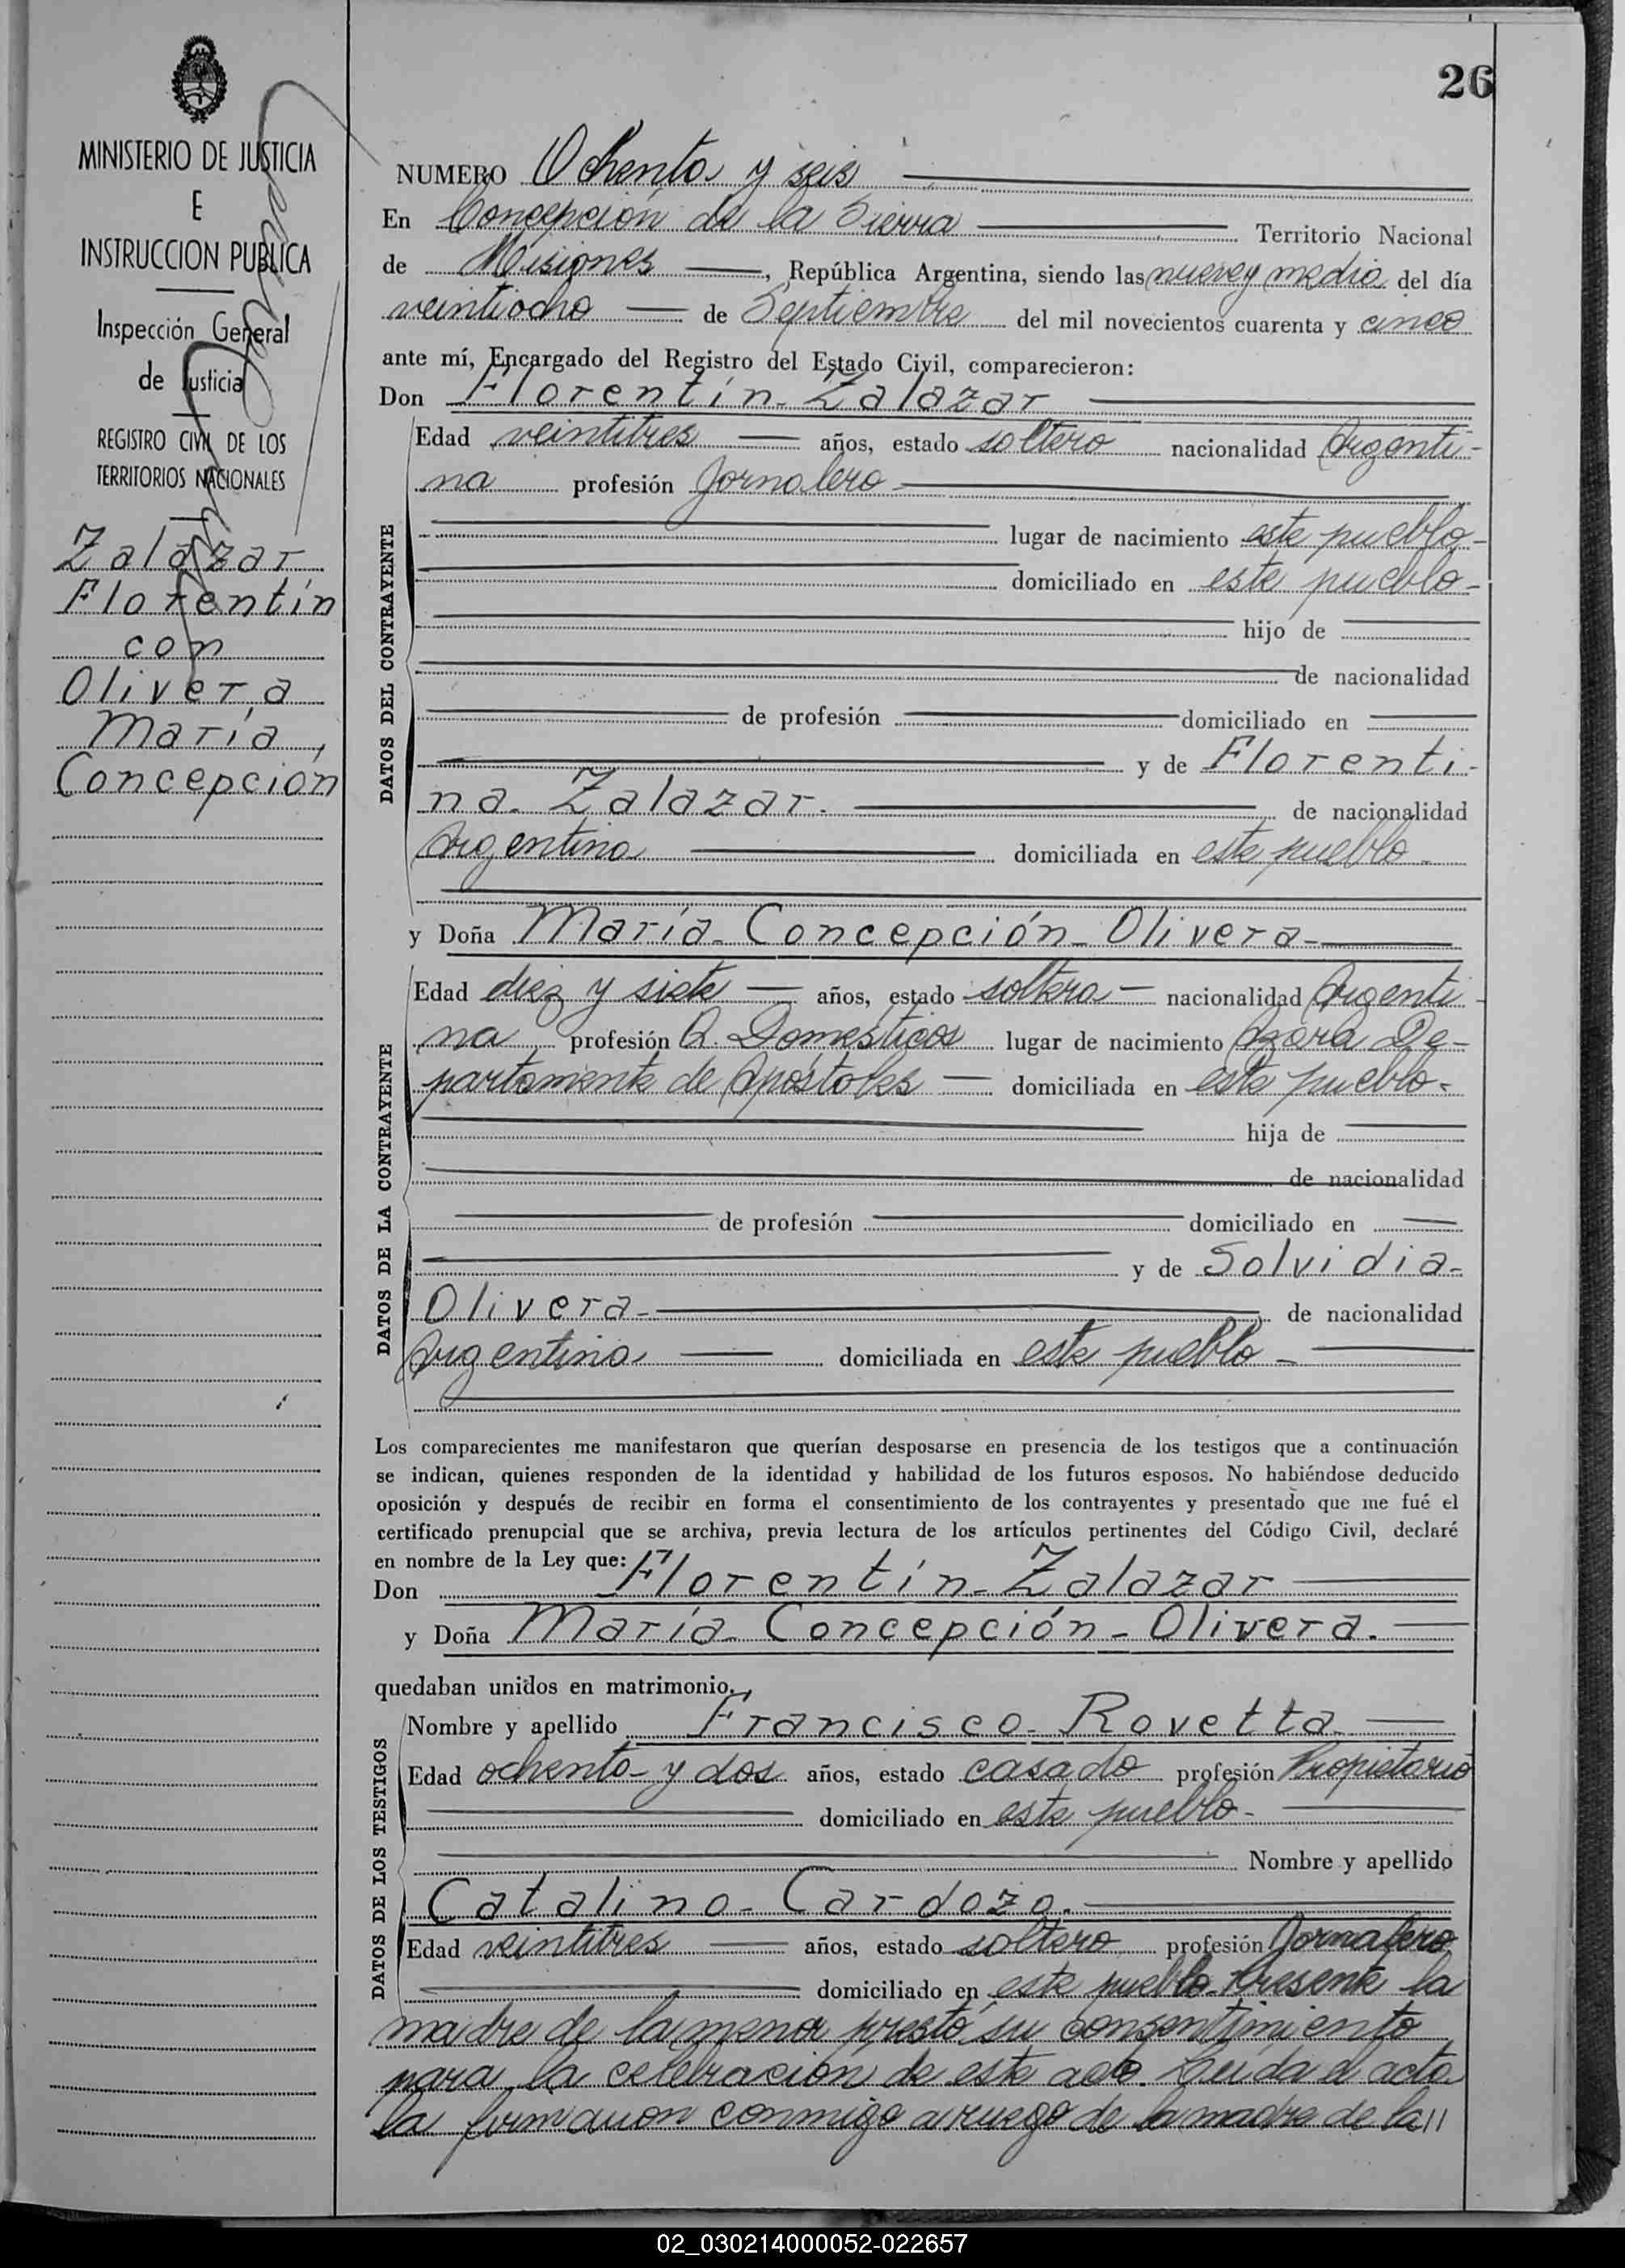 26
MINISTERIO DE JUSTICIA
E
INSTRUCCION PUBLICA
Inspección General
de Justicia
REGISTRO CIVIL DE LOS
TERRITORIOS NACIONALES
Zalazar
Florentín
con
Olivera
María
Concepción
NUMERO Ochenta y seis
En Concepción de la Sierra Territorio Nacional
de Misiones, República Argentina, siendo las nueve y media del día
veintiocho de Septiembre del mil novecientos cuarenta y cinco
ante mí, Encargado del Registro del Estado Civil, comparecieron:
Don Florentín Zalazar
DATOS DEL CONTRAYENTE
Edad veintitres años, estado soltero nacionalidad Argenti-
na profesión Jornalero
lugar de nacimiento este pueblo
domiciliado en este pueblo
hijo de
de nacionalidad
de profesión domiciliado en
y de Florenti-
na Zalazar. de nacionalidad
Argentina domiciliada en este pueblo
y Doña María Concepción Olivera
DATOS DE LA CONTRAYENTE
Edad diez y siete años, estado soltera nacionalidad Argenti-
na profesión Q. Domésticos lugar de nacimiento Azara De-
partamento de Apóstoles domiciliada en este pueblo
hija de
de nacionalidad
de profesión domiciliado en
y de Solvidia
Olivera de nacionalidad
Argentina domiciliada en este pueblo
Los comparecientes me manifestaron que querían desposarse en presencia de los testigos que a continuación
se indican, quienes responden de la identidad y habilidad de los futuros esposos. No habiéndose deducido
oposición y después de recibir en forma el consentimiento de los contrayentes y presentado que me fué el
certificado prenupcial que se archiva, previa lectura de los artículos pertinentes del Código Civil, declaré
en nombre de la Ley que:
Don Florentín Zalazar
y Doña María Concepción Olivera.
quedaban unidos en matrimonio.
DATOS DE LOS TESTIGOS
Nombre y apellido Francisco Rovetta
Edad ochenta y dos años, estado casado profesión Propietario
domiciliado en este pueblo
Nombre y apellido
Catalino Cardozo.
Edad veintitres años, estado soltero profesión Jornalero
domiciliado en este pueblo. Presente la
madre de la menor prestó su consentimiento
para la celebración de este acto. Leída el acta
la firmaron conmigo a ruego de la madre de la //
02_030214000052-022657